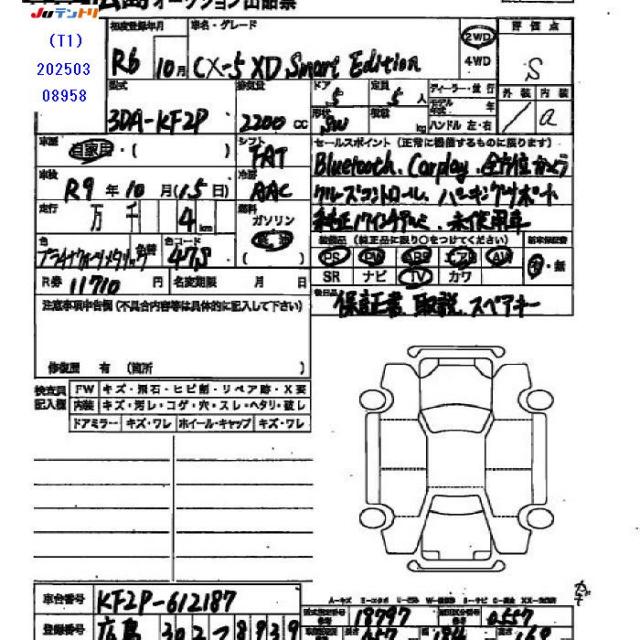 Juテントリ 広島 オークション出品票
(T1)
202503
08958
初度登録年月
R6 10月
車名・グレード
CX-5 XD Smart Edition
2WD
4WD
評価点
S
外装 内装
a
型式
3DA-KF2P
排気量
2200 CC
ドア
5
定員
5 人
ディーラー・並行
モデル年式 年
形状
SW
積載 kg
ハンドル 左・右
車歴
自家用・( )
シフト
FAT
セールスポイント(正常に機能するものに限ります)
Bluetooth、Carplay、全方位カメラ
クルーズコントロール、パーキングサポート
純正17インチアルミ、未使用車
車検
R9 年 10 月 (15日)
冷房
AAC
走行
万 千 4 km
燃料
ガソリン
軽油
装備品(純正品に限り○をつけてください)
PS PW ABS エアB AW
SR ナビ TV カワ
新車保証書
有・無
色
プラチナクォーツメタリック
色替
色コード
47S
R券 11710 円
名変期限 月 日
後日品
保証書、取説、スペアキー
注意事項申告欄(不具合内容等は具体的に記入して下さい)
修復歴 有 (箇所 )
検査員記入欄
FW キズ・飛石・ヒビ割・リペア跡・X要
内装 キズ・汚レ・コゲ・穴・スレ・ヘタリ・破レ
ドアミラー キズ・ワレ ホイール・キャップ キズ・ワレ
車台番号 KF2P-612187
A-キズ
型式指定番号 18797
類別区分番号 0557
登録番号 広島 302 つ 8939